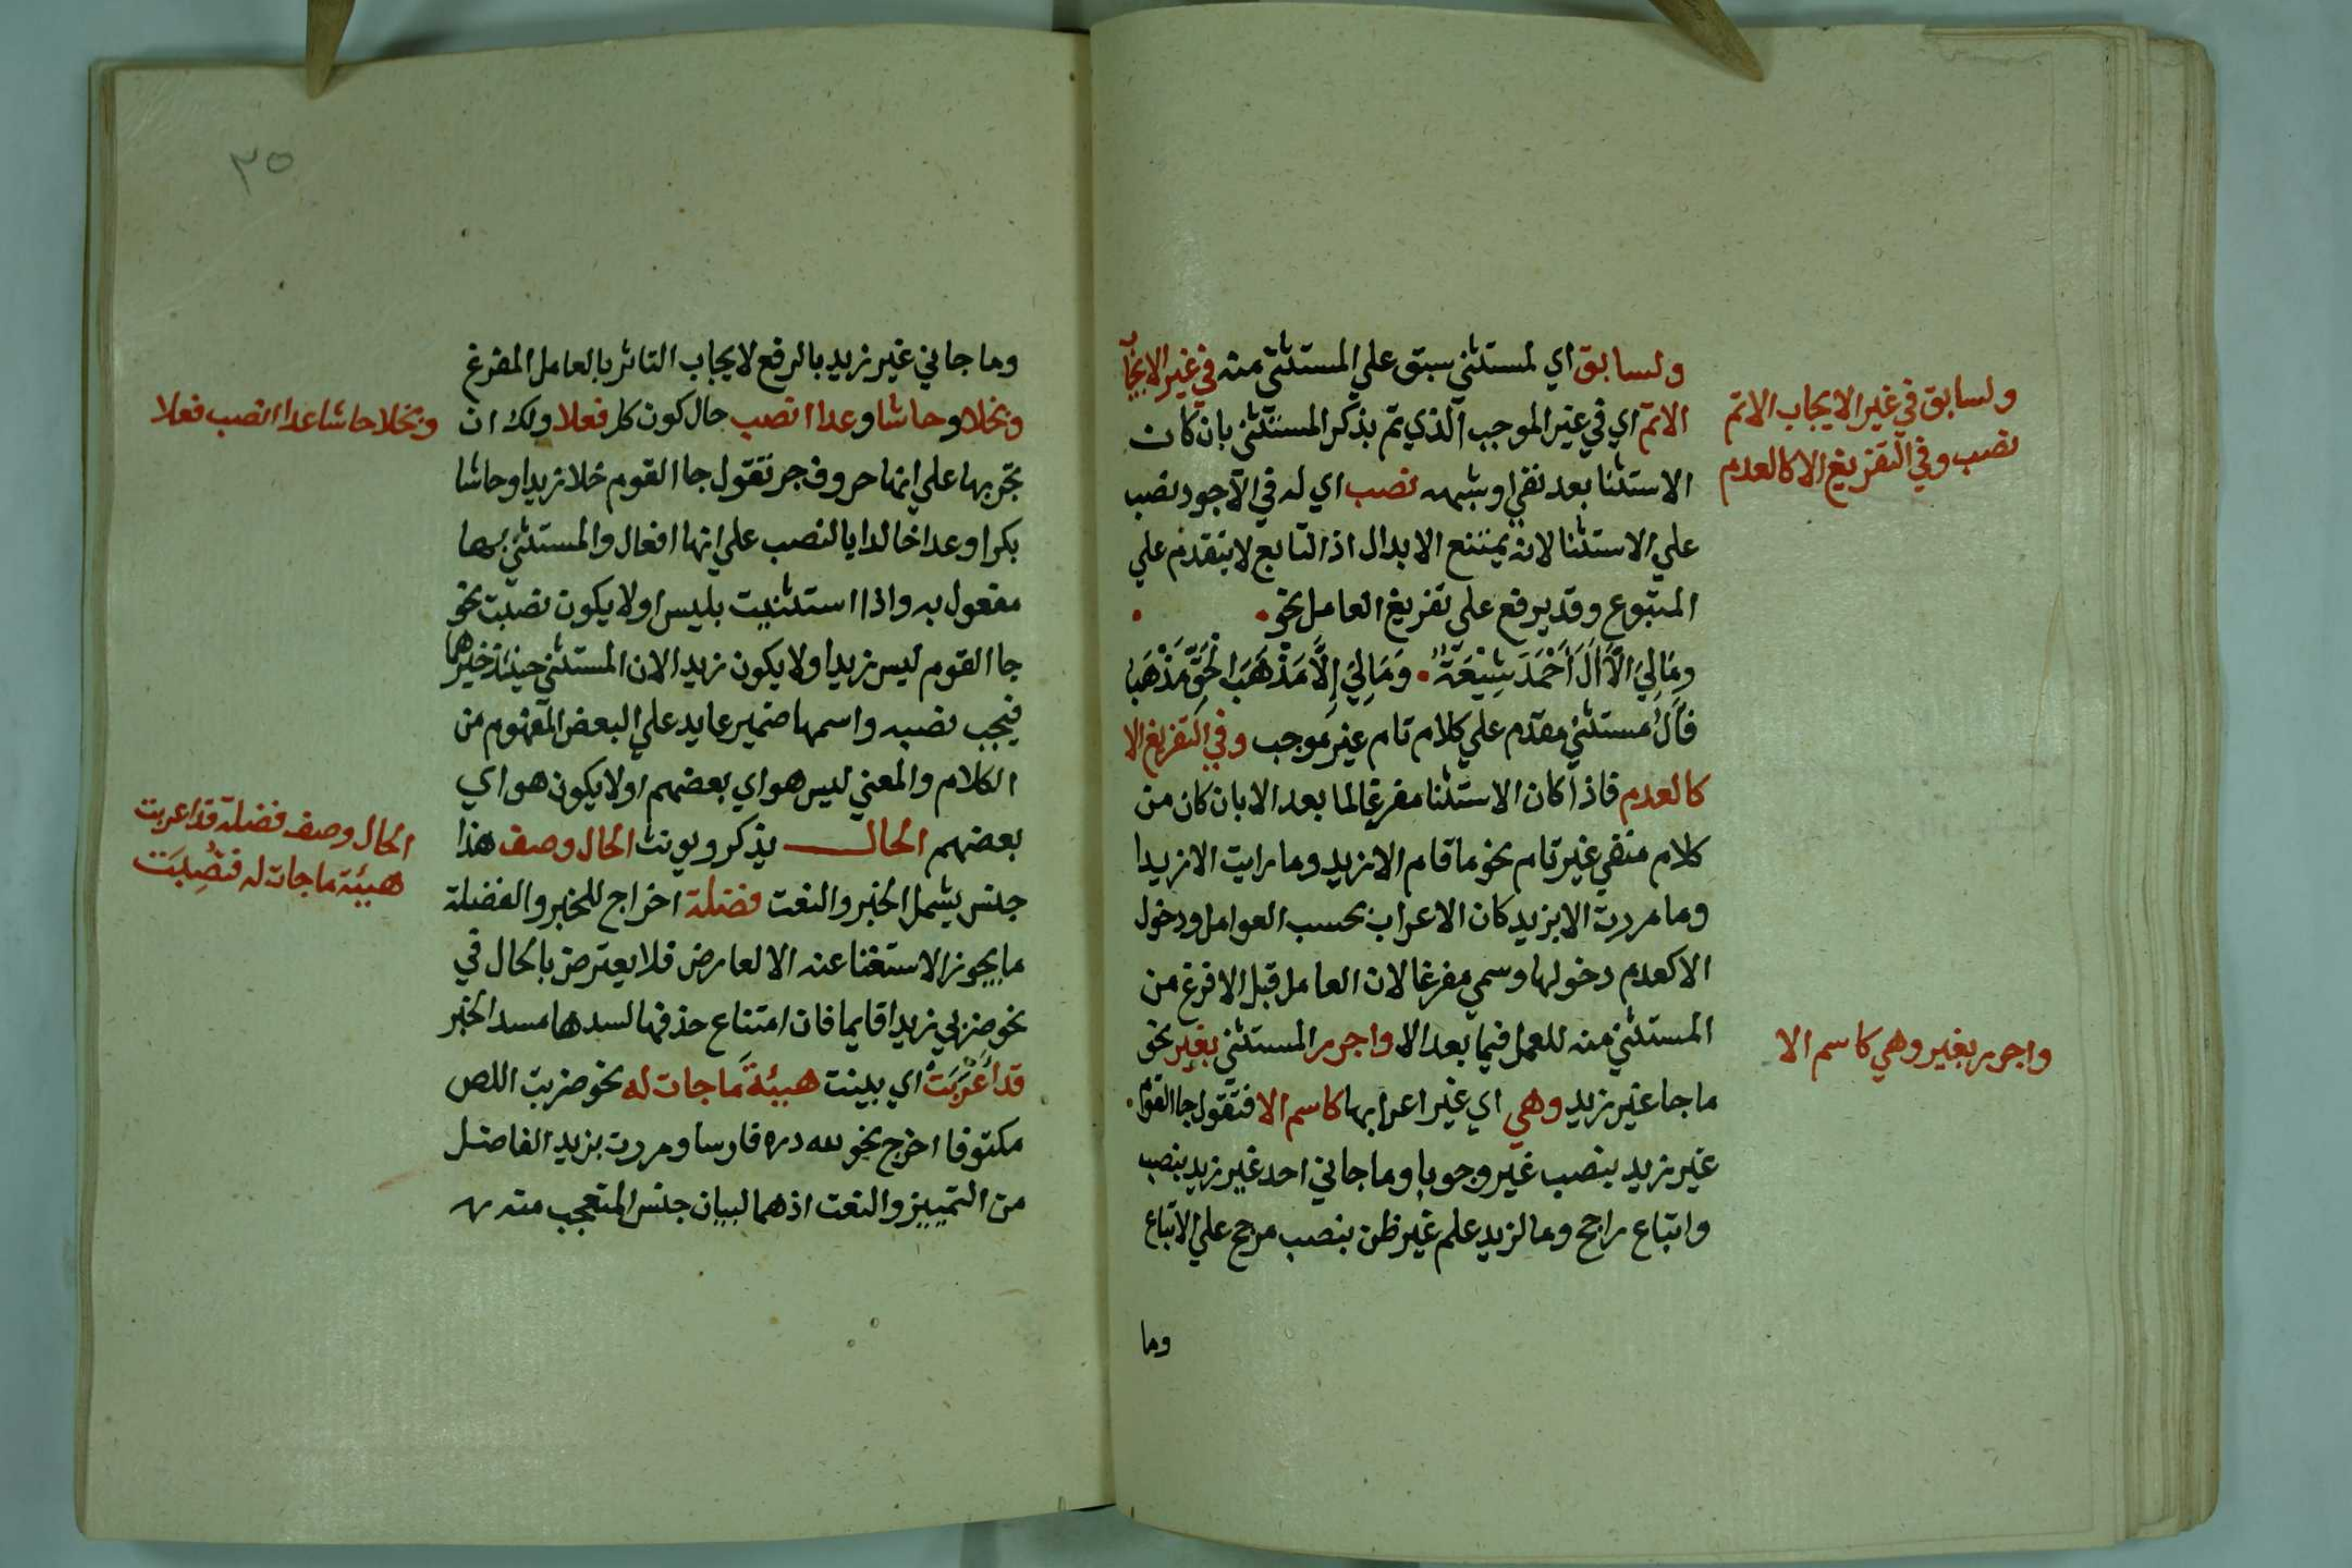 ولسابق اي لمستثني سبق علي المستثني منه في غير الايجاب
الاتم اي في غير الموجب الذي تم بذكر المستثني بان كان
الاستثنا بعد نفي او شبهه نصب اي له في الاجود نصب
علي الاستثنا لانه يمتنع الابدال اذ التابع لا يتقدم علي
المتبوع وقد يرفع علي تفريغ العامل نحو
وَمَالِيَ الَّا اَلَ اَحْمَدَ شِيْعَةٌ وَمَالِيَ إِلَّا مَذْهَبَ الْحَقِّ مَذْهَبُ
فآل مستثني مقدم علي كلام تام غير موجب وفي التفريغ الا
كالعدم فاذا كان الاستثنا مفرغا لما بعد الا بان كان من
كلام منفي غير تام نحو ما قام الا زيد وما رايت الا زيدا
وما مررت الا بزيد كان الاعراب بحسب العوامل ودخول
الا كعدم دخولها وسمي مفرغا لان العامل قبل الا فرغ من
المستثني منه للعمل فيما بعد الا واجرر المستثني بغير نحو
ما جا غير زيد وهي اي غير اعرابها كاسم الا فتقول جا القوم
غير زيد بنصب غير وجوبا وما جاني احد غير زيد بنصب
واتباع راجح وما لزيد علم غير ظن بنصب مرجح علي الاتباع
وما
ولسابق في غير الايجاب الاتم
نصب وفي التفريغ الا كالعدم
واجرر بغير وهي كاسم الا
٣٥
وما جاني غير زيد بالرفع لايجاب التاثر بالعامل المفرغ
وبخلا وحاشا وعدا انصب حال كون كل فعلا ولك ان
تجر بها علي انها حروف جر تقول جا القوم خلا زيدا وحاشا
بكرا وعدا خالدا بالنصب علي انها افعال والمستثني بها
مفعول به واذا استثنيت بليس او لا يكون نصبت نحو
جا القوم ليس زيدا ولا يكون زيدا لان المستثني حينئذ خبرهما
فيجب نصبه واسمها ضمير عايد علي البعض المفهوم من
الكلام والمعني ليس هو اي بعضهم او لا يكون هو اي
بعضهم الحال يذكر ويونث الحال وصف هذا
جنس يشمل الخبر والنعت فضلة اخراج للخبر والفضلة
ما يجوز الاستغنا عنه الا لعارض فلا يعترض بالحال في
نحو ضربي زيدا قايما فان امتناع حذفها لسدها مسد الخبر
قد اَعْرَبَتْ اي بينت هيئةَ ما جات له نحو ضربت اللص
مكتوفا اخرج نحو لله دره فارسا ومررت بزيد الفاضل
من التمييز والنعت اذ هما لبيان جنس المتعجب منه
وبخلا حاشا عدا انصب فعلا
الحال وصف فضلة قد اعربت
هيئة ما جات له فنُصِبَت